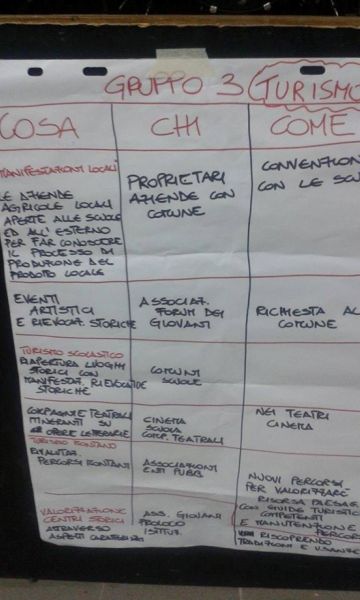 GRUPPO 3 TURISMO
COSA
CHI
COME
MANIFESTAZIONI LOCALI
LE AZIENDE
AGRICOLE LOCALI
APERTE ALLE SCUOLE
ED ALL'ESTERNO
PER FAR CONOSCERE
IL PROCESSO DI
PRODUZIONE DEL
PRODOTTO LOCALE
PROPRIETARI
AZIENDE CON
COMUNE
CONVENZION
CON LE SCU
EVENTI
ARTISTICI
E RIEVOCAZ. STORICHE
ASSOCIAZ.
FORUM DEI
GIOVANI
RICHIESTA AL
COMUNE
TURISMO SCOLASTICO
RIAPERTURA LUOGHI
STORICI CON
MANIFESTAZ. RIEVOCATIVE
STORICHE
COMUNI
SCUOLE
COMPAGNIE TEATRALI
ITINERANTI SU
OPERE LETTERARIE
CINEMA
SCUOLA
COMP. TEATRALI
NEI TEATRI
CINEMA
TURISMO MONTANO
RIVALUTAZ.
PERCORSI MONTANI
ASSOCIAZIONI
ENTI PUBB.
NUOVI PERCORSI
PER VALORIZZARE
RISORSA PAESAG.
CON GUIDE TURISTIC
COMPETENTI
E MANUTENZIONE
PERCORS
VALORIZZAZIONE
CENTRI STORICI
ATTRAVERSO
ASPETTI CARATTERIZ
ASS. GIOVANI
PROLOCO
ISTITUZ.
RISCOPRENDO
TRADIZIONI E USANZE